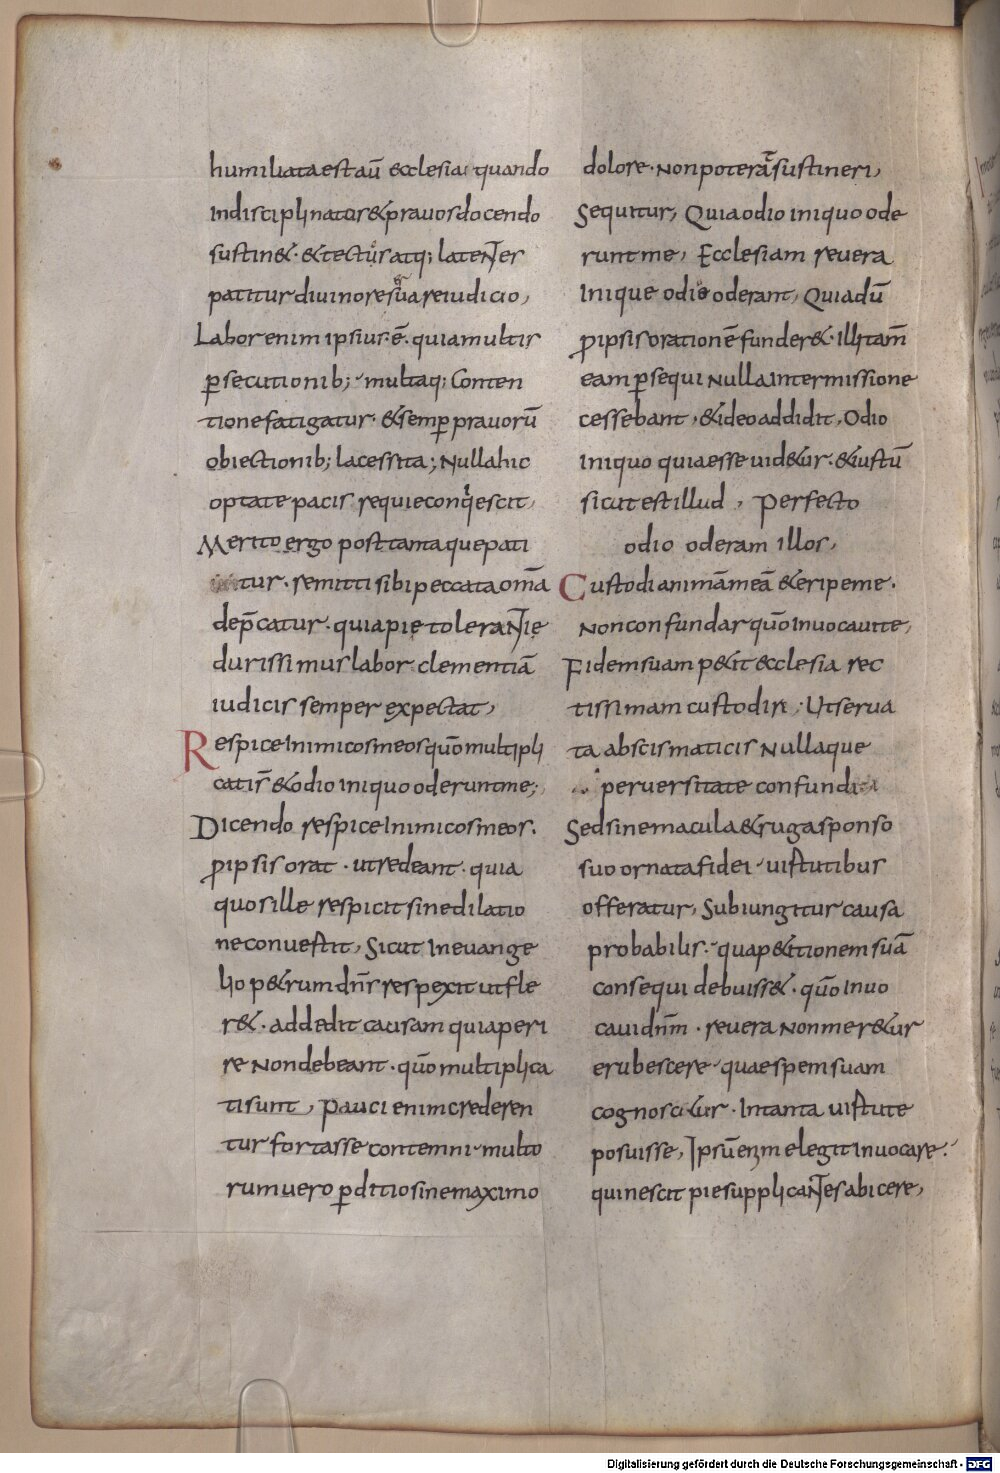 humiliata est aū ecclesia quando
Indisciplinatus & prauos docendo
sustin&. & tectūr atq; latenter
patitur diuino resūa reiudicio,
Labor enim ipsius .ē. quia multis
psecutionib; multaq; Conten
tione fatigatur. & semp prauorū
obiectionib; lacessita; Nulla hic
optate pacis requie conqescit,
Merito ergo post tanta que pati
tur. remitti sibi peccata om̄a
dep̄catur. quia pie tolerantie
durissimus labor clementiā
iudicis semper expectat,
Respice Inimicos meos qūo multipli
catis̄ & odio iniquo oderunt me;
Dicendo respice Inimicos meos.
p ipsis orat. ut redeant. quia
quos ille respicit sine dilatio
ne conuertit, Sicut In euange
lio p&rum dn̄s respexit ut fle
r&. addedit causam quia peri
re Non debeant. qūo multiplica
ti sunt, Pauci enim crederen
tur fortasse contemni multo
rum uero pditio sine maximo
dolore. Non poterat sustineri,
Sequitur, Quia odio iniquo ode
runt me, Ecclesiam reuera
Inique odio oderant, Quia dū
p ipsis orationē funder&. Illi tam̄
eam psequi Nulla Intermissione
cessebant, & ideo addidit, Odio
Iniquo quia esse uid&ur. & iustū
sicut est illud, Perfecto
odio oderam illos,
Custodi animā meā & eripe me.
Non confundar qūo Inuocaui te,
Fidem suam p&it ecclesia rec
tissimam custodiri, Ut serua
ta ab scismaticis Nulla que
peruersitate confundi
Sed sine macula & ruga sponso
suo ornata fidei uirtutibus
offeratur, Subiungitur causa
probabilis. qua p&itionem suā
consequi debuiss&. qūo Inuo
caui dn̄m. reuera Non mer&ur
erubescere quae spem suam
cognosci&ur. In tanta uirtute
posuisse, Ipsū enim elegit Inuocare.
qui nescit pie supplicantes abicere,
Digitalisierung gefördert durch die Deutsche Forschungsgemeinschaft - DFG